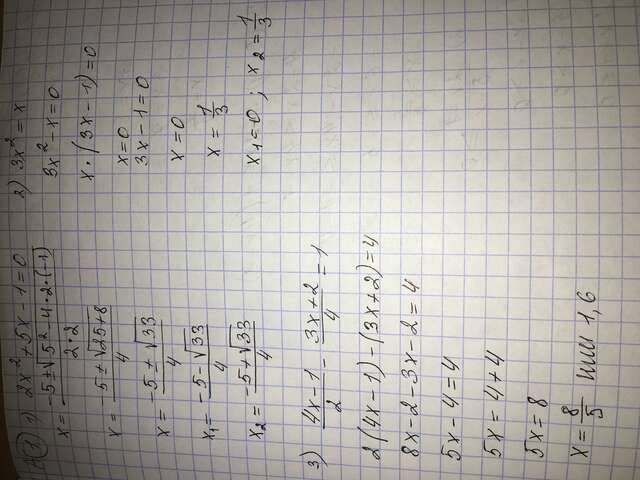 А(7) 1) 2x² + 5x - 1 = 0
x = (-5 ± √(5² - 4·2·(-1)))/(2·2)
x = (-5 ± √(25+8))/4
x = (-5 ± √33)/4
x₁ = (-5 - √33)/4
x₂ = (-5 + √33)/4
2) 3x² = x
3x² - x = 0
x·(3x - 1) = 0
x = 0
3x - 1 = 0
x = 0
x = 1/3
x₁ = 0 ; x₂ = 1/3
3) (4x-1)/2 - (3x+2)/4 = 1
2(4x-1) - (3x+2) = 4
8x - 2 - 3x - 2 = 4
5x - 4 = 4
5x = 4 + 4
5x = 8
x = 8/5 или 1,6